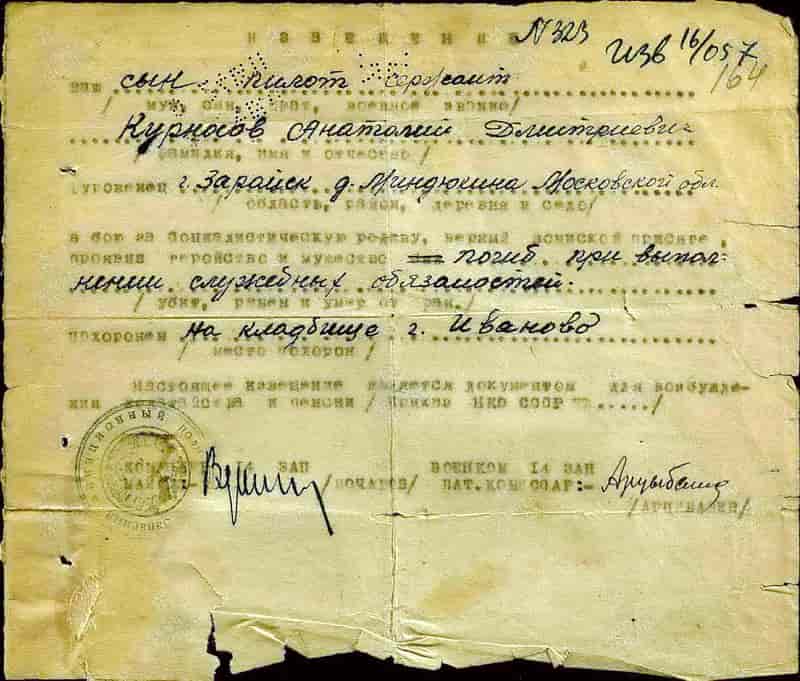 ИЗВЕЩЕНИЕ N 323
Изв 16/057
164
ваш сын пилот сержант
/ муж, сын, брат, военное звание/
Курносов Анатолий Дмитриеви-
/ фамилия, имя и отчество /
уроженец г. Зарайск д. Миндюкина Московской обл.
/область, район, деревня и село/
в бою за Социалистическую родину, верный воинской присяге,
проявив геройство и мужество погиб при выпол-
нении служебных обязаностей.
/ убит, ранен и умер от ран./
похоронен на кладбище г. Иваново
/ место похорон /
Настоящее извещение является документом для возбужде-
нии ходатайства и пенсии / Приказ НКО СССР № ...../
14 ЗАП ВОЕНКОМ 14 ЗАП
МАЙОР:- /ПОЧАРОВ/ БАТ.КОМИССАР:-